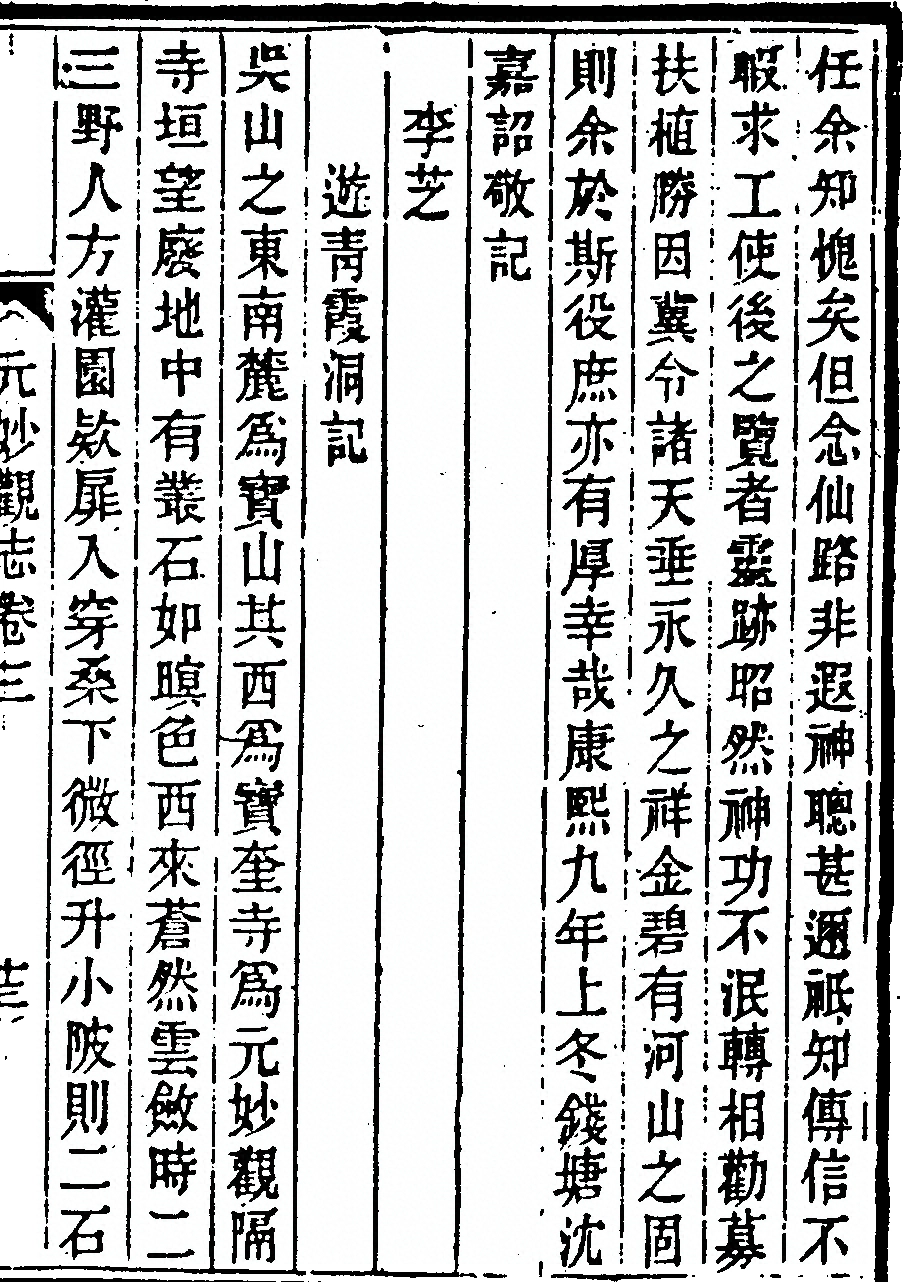 任余知愧矣但念仙路非遐神聰甚邇祗知傳信不
暇求工使後之覽者靈跡昭然神功不泯轉相勸募
扶植勝因冀令諸天垂永久之祥金碧有河山之固
則余於斯役庶亦有厚幸哉康熙九年上冬錢塘沈
嘉詔敬記
李芝
遊青霞洞記
吳山之東南麓爲寶山其西爲寶奎寺爲元妙觀隔
寺垣望廢地中有叢石如暝色西來蒼然雲斂時二
三野人方灌園欵扉入穿桑下微徑升小陂則二石
元妙觀志卷三